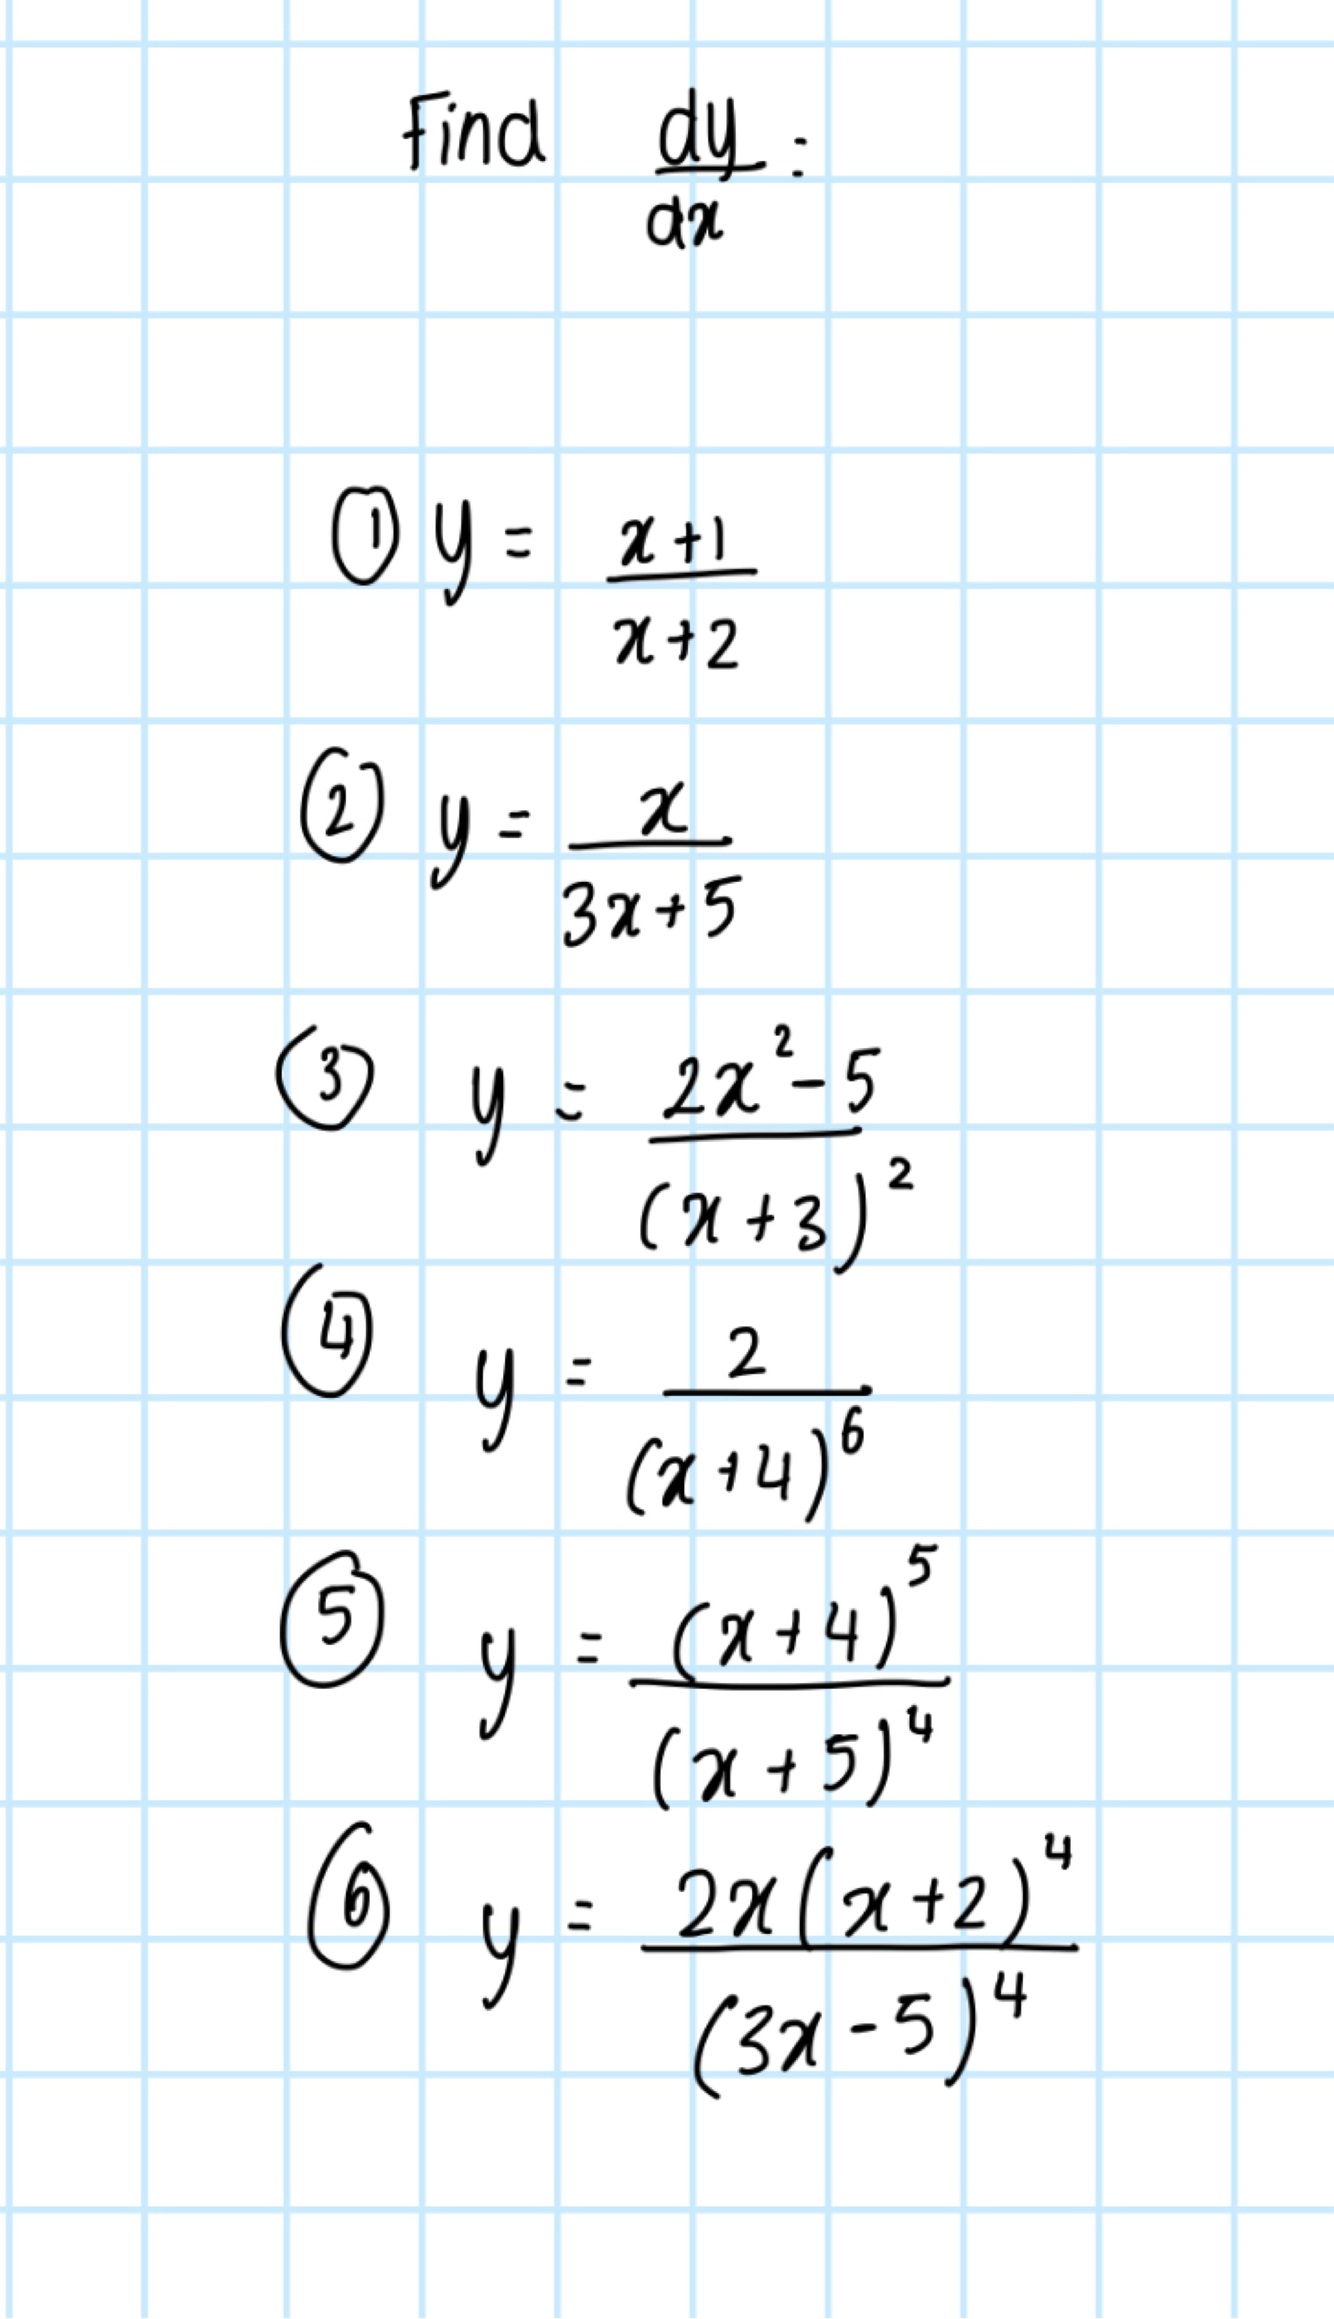 Find dy/dx :
① y = (x+1)/(x+2)
② y = x/(3x+5)
③ y = (2x²-5)/(x+3)²
④ y = 2/(x+4)⁶
⑤ y = (x+4)⁵/(x+5)⁴
⑥ y = 2x(x+2)⁴/(3x-5)⁴